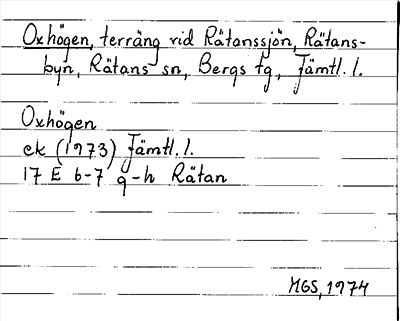 Oxhögen, terräng vid Rätanssjön, Rätans-
byn, Rätans sn, Bergs tg, Jämtl. l.
Oxhögen
ek (1973) Jämtl. l.
17 E 6-7 g-h Rätan
MGS, 1974